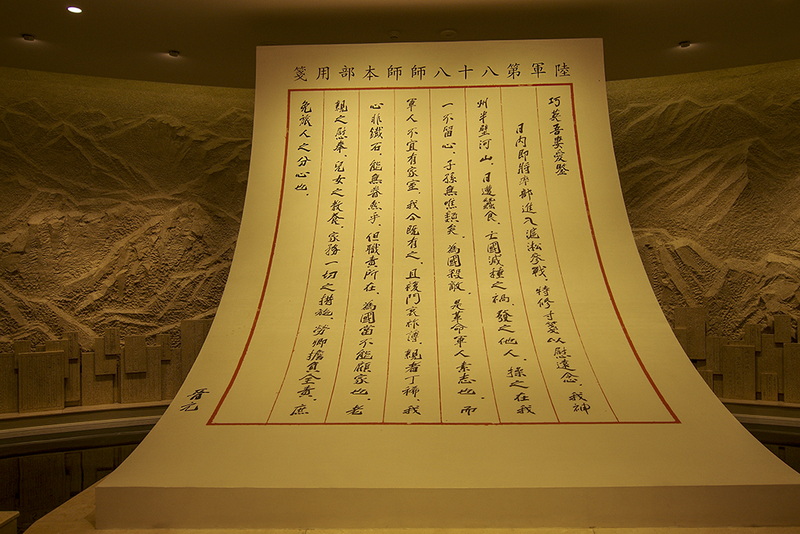 陸軍第八十八師師本部用箋
巧英吾妻愛鑒
日内即將率部進入滬淞參戰，特修寸箋以慰遠念。我神
州半壁河山，日遭蠶食，亡國滅種之禍，發之他人，操之在我
一不留心，子孫無噍類矣。為國殺敵，是革命軍人素志也。而
軍人不宜有家室，我今既有之，且復門衰祚薄，親者丁稀，我
心非鐵石，能無眷然乎，但職責所在，為國當不能顧家也。老
親之慰奉，兒女之教養，家務一切之措施，勞卿擔負全責，庶
免旅人之分心也。
晉元